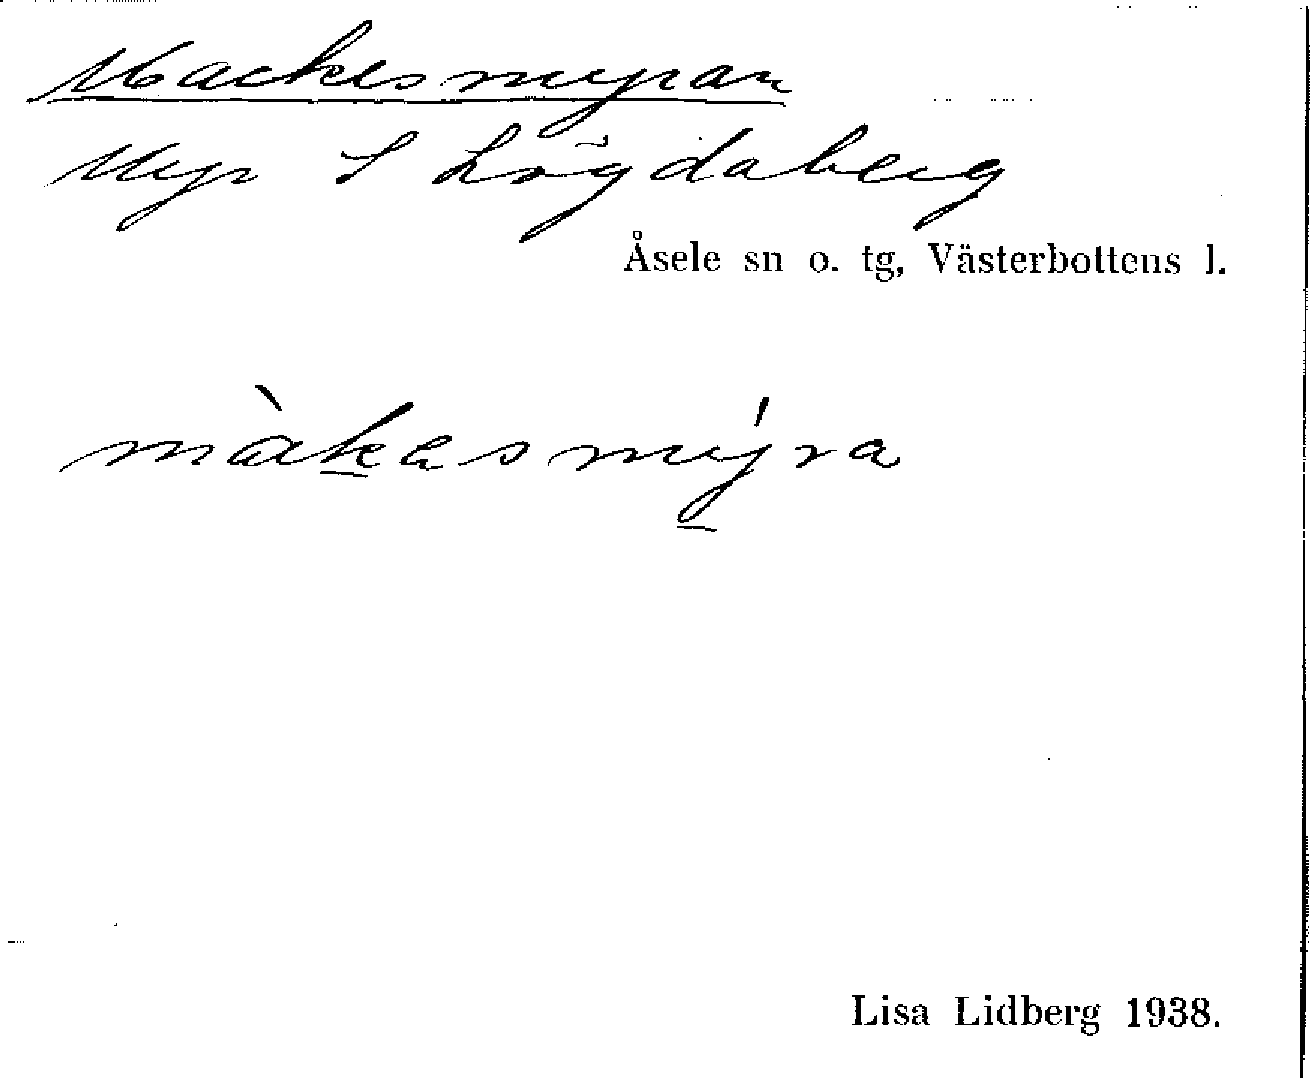 Mackesmyran
Myr S Lögdaberg
Åsele sn o. tg, Västerbottens l.
màkasmý̱ra
Lisa Lidberg 1938.